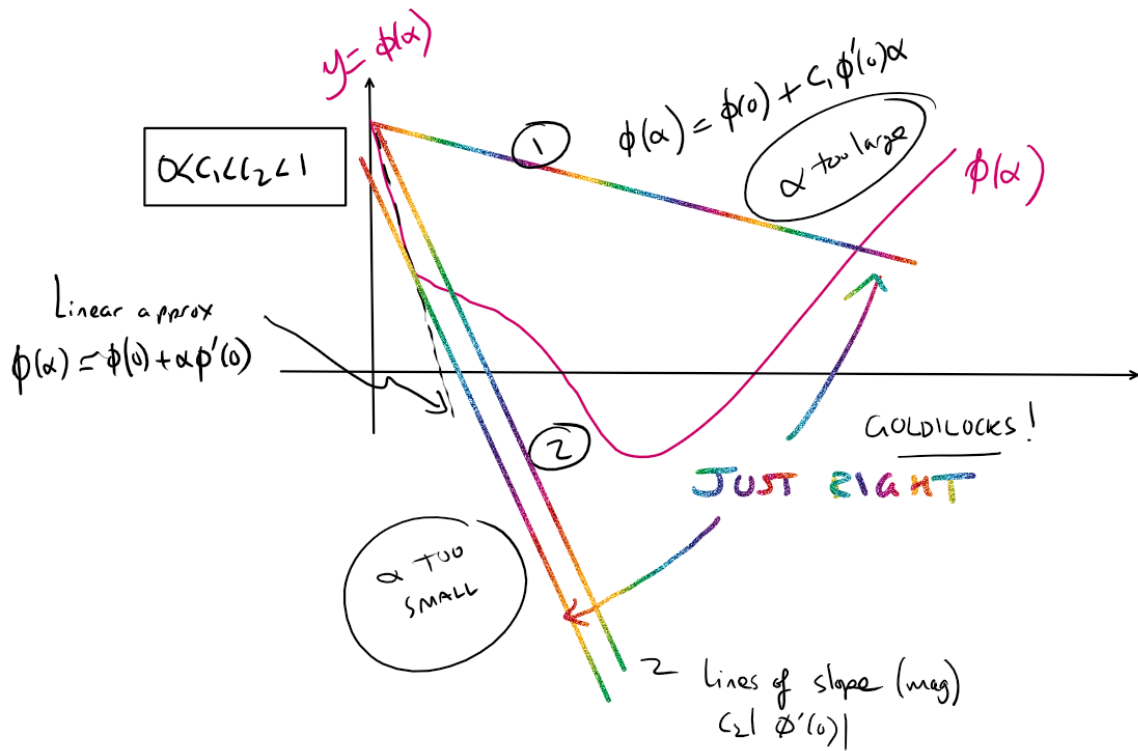 y = ϕ(α)
ϕ(α) = ϕ(0) + C₁ϕ'(0)α
1
α too large
0<C₁<C₂<1
ϕ(α)
Linear approx
ϕ(α) ≃ ϕ(0) + αϕ'(0)
GOLDILOCKS!
2
JUST RIGHT
α TOO
SMALL
2 Lines of slope (mag)
C₂|ϕ'(0)|